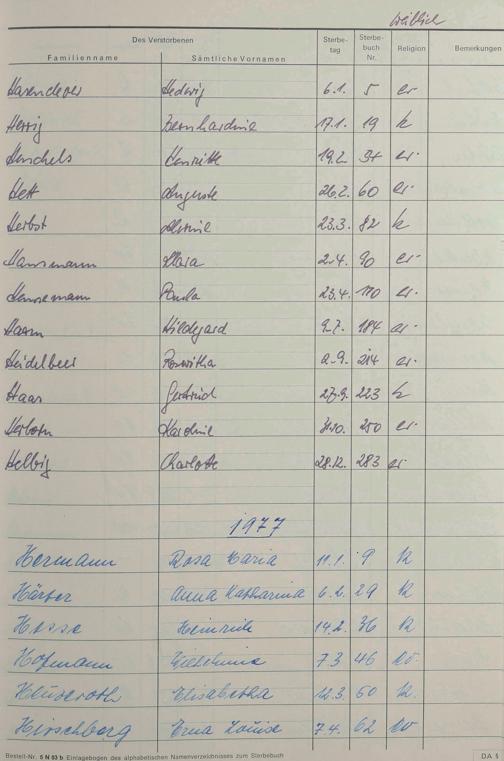 weiblich
Des Verstorbenen Sterbe-tag Sterbe-buch Nr. Religion Bemerkungen
Familienname Sämtliche Vornamen
Hasenclever Hedwig 6.1. 5 ev
Herrig Bernhardine 17.1. 19 k
Henschels Henriette 19.2. 37 ev.
Hett Auguste 26.2. 60 ev.
Herbst 23.3. 82 k
Hansmann Klara 2.4. 90 ev.
Hansemann Paula 23.4. 110 ev.
Haarm Hildegard 9.7. 184 ev.
Heidelbeer Roswitha 2.9. 214 ev.
Haas Gertrud 27.9. 223 k
Karoline 250 ev.
Helbig Charlotte 28.12. 283 ev
1977
Hermann Rosa Maria 11.1. 9 k
Härter Anna Katharina 6.2. 29 k
Hesse Heinrich 14.2. 36 k
Hofmann 7.3 46 ev.
Elisabetha 12.3. 50 k.
Hirschberg Erna Louise 7.4. 62 ev
Bestell-Nr. 5 N 03 b Einlagebogen des alphabetischen Namenverzeichnisses zum Sterbebuch DA 1